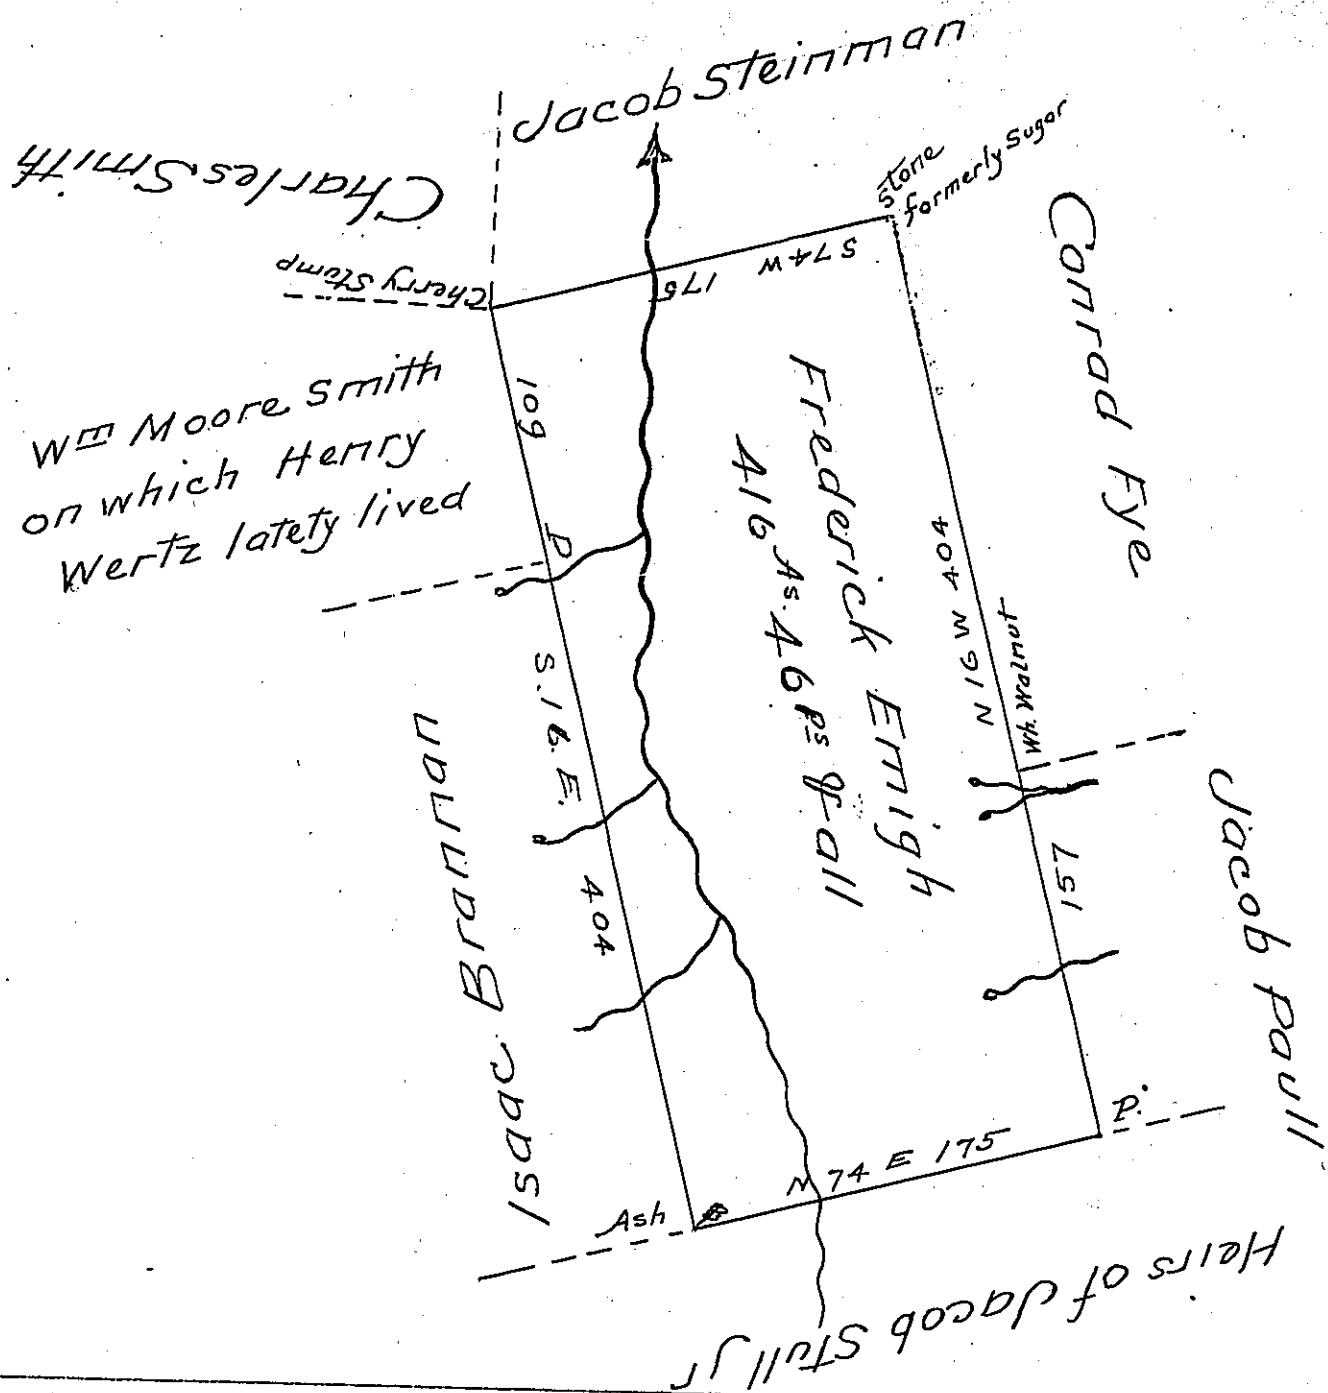 Jacob Steinman
Charles Smith
Stone
formerly Sugar
Cherry Stump
S 74 W
175
Conrad Fye
Wm Moore Smith
on which Henry
Wertz latety lived
109
P
Frederick Emigh
416 As. 46 Ps & all
N 16 W 404
Wh. Walnut
S. 16. E.
404
Isaac Brannan
151
Jacob Paull
P.
N 74 E 175
Ash
Heirs of Jacob Stull Jr